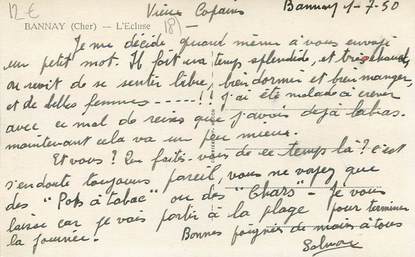 12€
Vieux Copains
Bannay 1-7-50
18)
BANNAY (Cher) — L'Ecluse
Je me décide quand même à vous envoyer
un petit mot. Il fait un temps splendide, et très chaud,
on revit de se sentir libre, bien dormir et bien manger,
et de belles femmes -----!!! J'ai été malade à crever
avec ce mal de reins que j'avais déjà labas.
maintenant cela va un peu mieux.
Et vous? En faits-vous de ce temps là? C'est
s'en doute toujours pareil, vous ne voyez que
des "Pots à tabac" ou des "Chars" - Je vous
laisse car je vais partir à la plage pour terminer
la journée.
Bonnes poignées de mains à tous